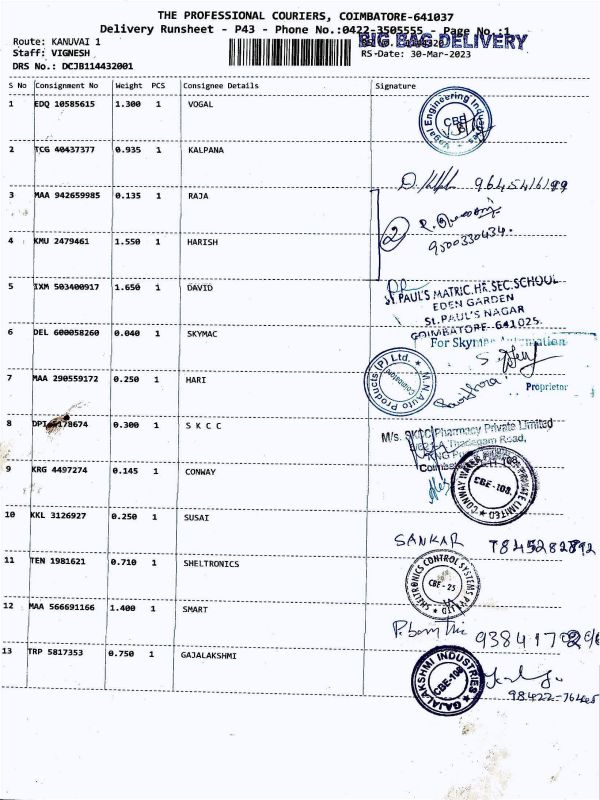 THE PROFESSIONAL COURIERS, COIMBATORE-641037
Delivery Runsheet - P43 - Phone No.:0422-3505555 - Page No.:1
BIG BAG DELIVERY
Route: KANUVAI 1
Staff: VIGNESH
RS-Date: 30-Mar-2023
DRS No.: DCJB114432001
S No Consignment No Weight PCS Consignee Details Signature
1 EDQ 10585615 1.300 1 VOGAL
CBE
2 TCG 40437377 0.935 1 KALPANA
3 MAA 942659985 0.135 1 RAJA
2
9500330434.
4 KMU 2479461 1.550 1 HARISH
5 IXM 503400917 1.650 1 DAVID
ST.PAUL'S MATRIC.HR.SEC.SCHOOL
EDEN GARDEN
St. PAUL'S NAGAR
COIMBATORE-641025.
6 DEL 600058260 0.040 1 SKYMAC
For Skymac Automation
Proprietor
7 MAA 290559172 0.250 1 HARI
M.N. Auto Products (P) Ltd.
8 0.300 1 S K C C
M/s. SKCC Pharmacy Private Limited
Thadagam Road,
9 KRG 4497274 0.145 1 CONWAY
CBE-108.
10 KKL 3126927 0.250 1 SUSAI
SANKAR
11 TEN 1981621 0.710 1 SHELTRONICS
SHELTRONICS CONTROL SYSTEMS PVT LTD
CBE - 25
12 MAA 566691166 1.400 1 SMART
13 TRP 5817353 0.750 1 GAJALAKSHMI
GAJALAKSHMI INDUSTRIES
CBE-108